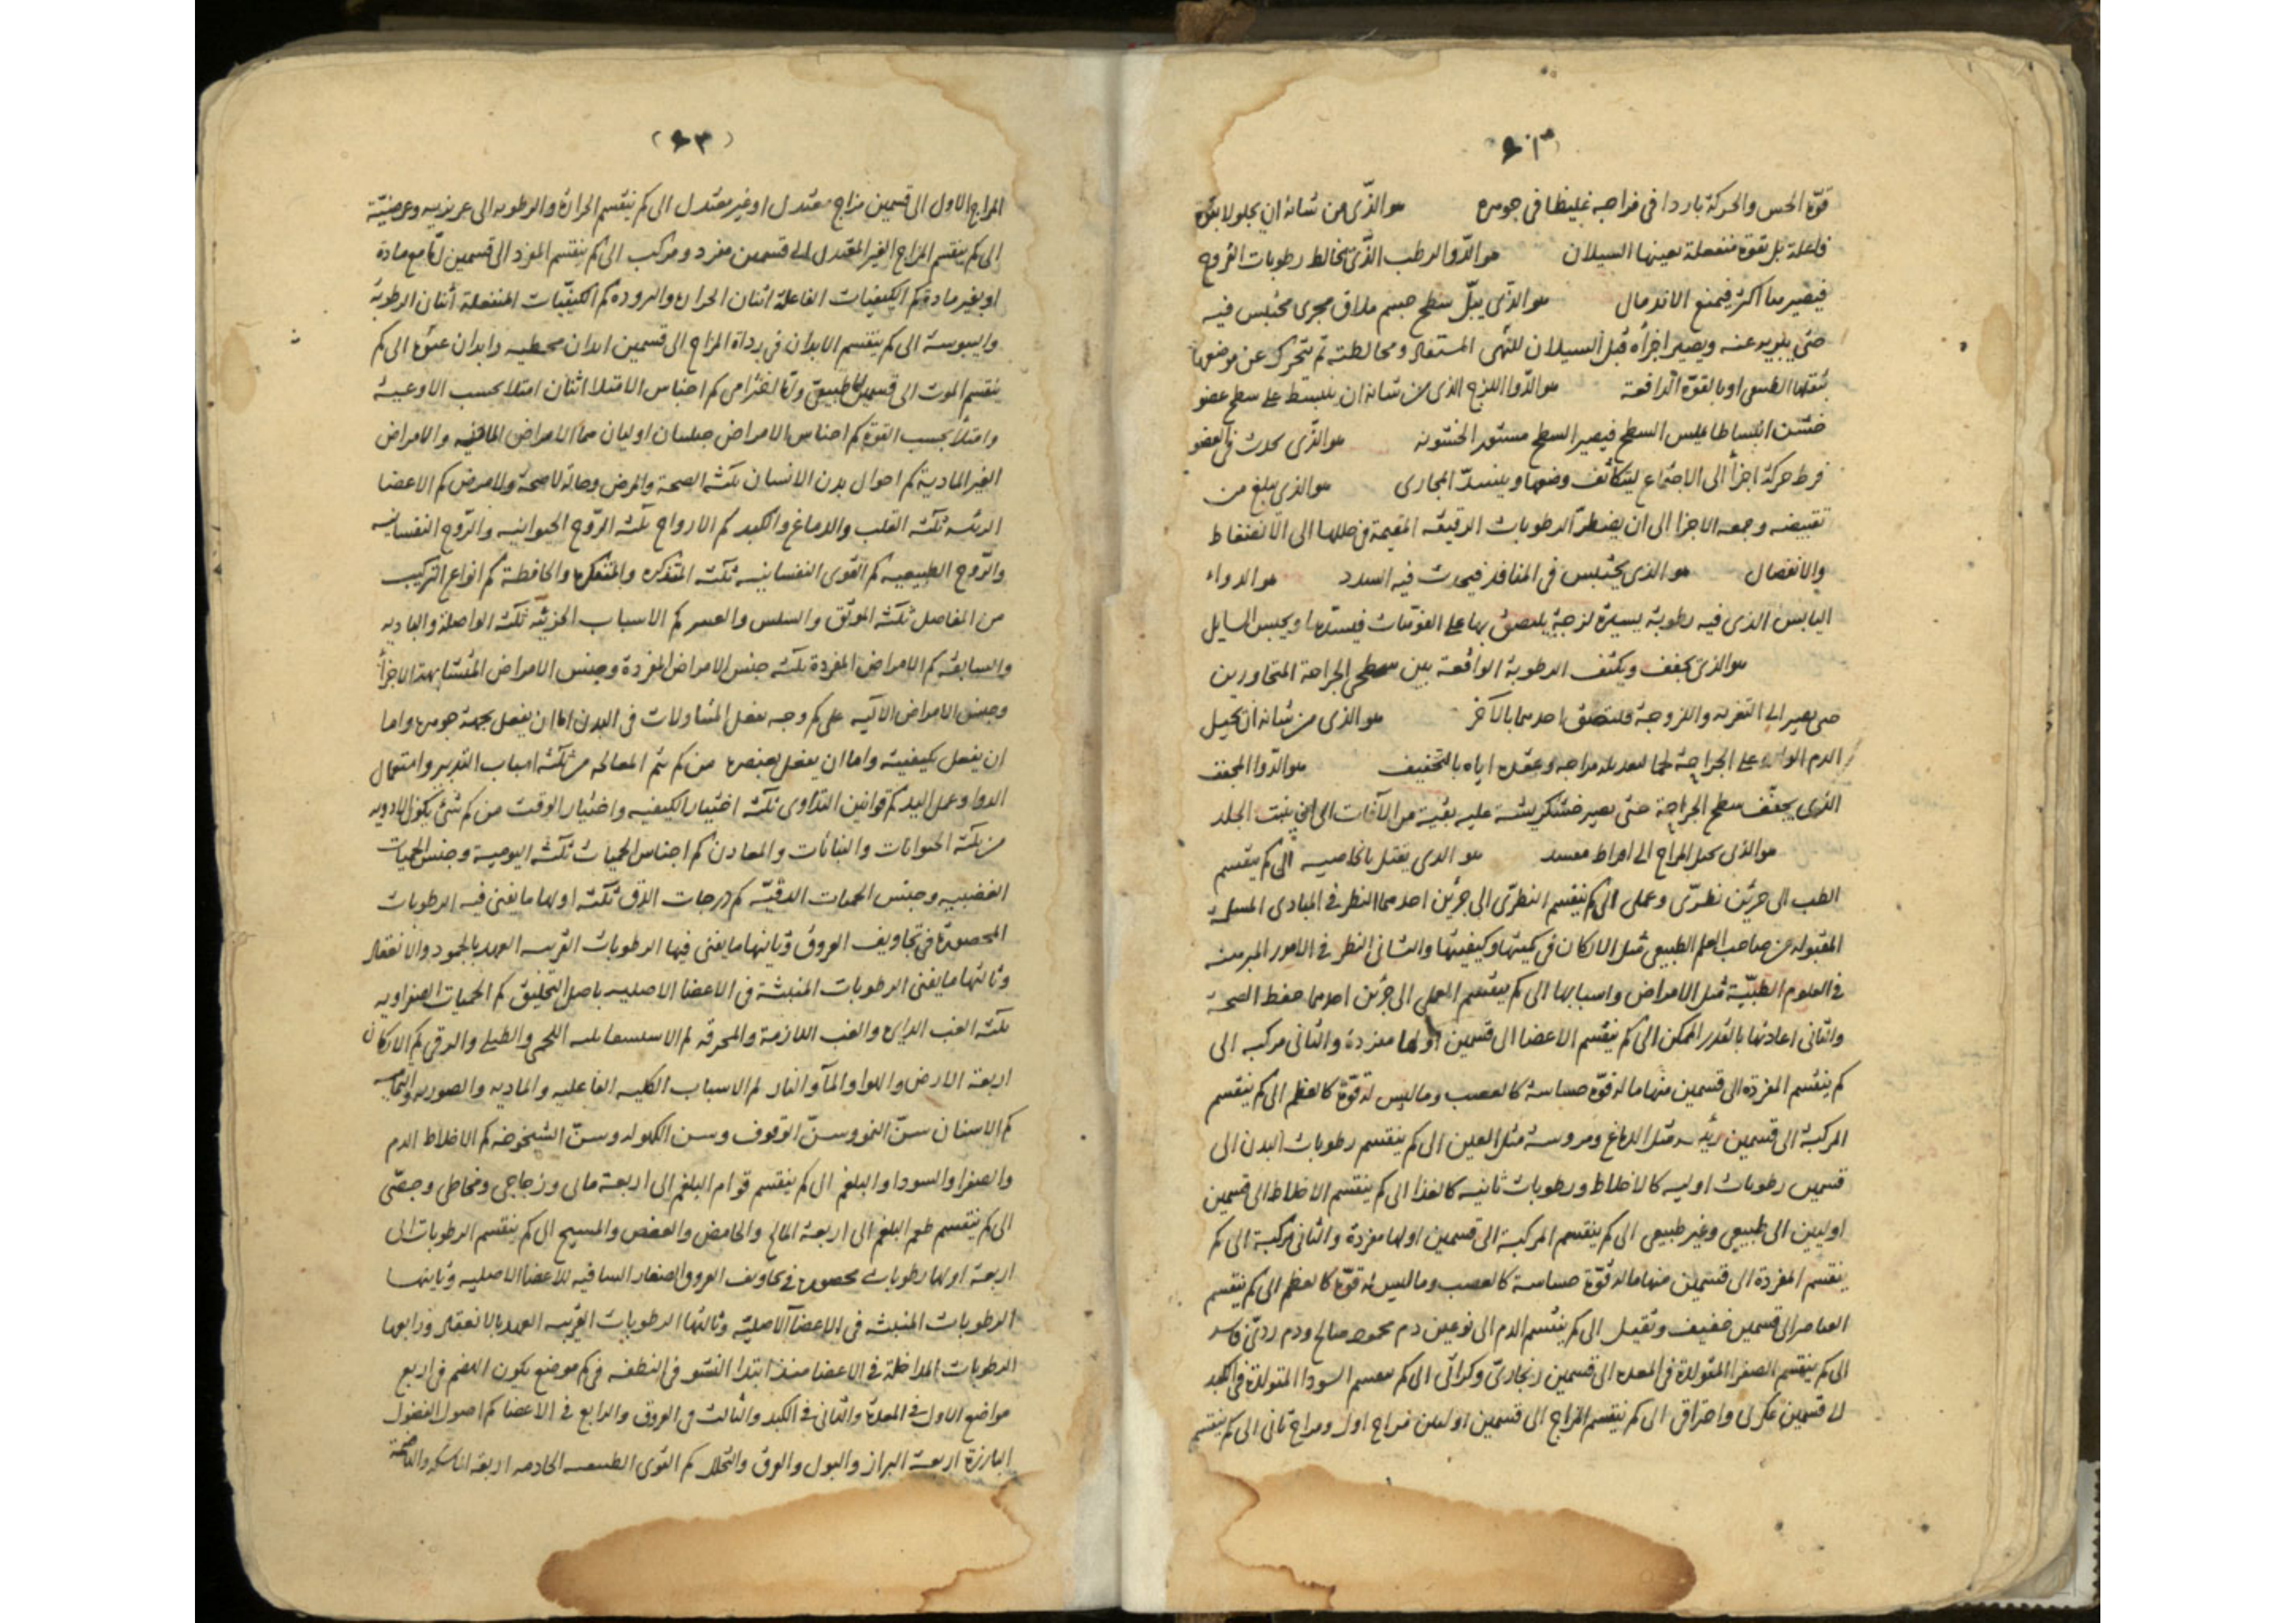 قوّة الحس والحركة باردا في مزاجه غليظا في جوهره هو الذّي من شانه ان يجلو لا بقوّة
فاعلة بل بقوة منفعلة يعينها السيلان هو الدّوا الرطب الذّي يخالط رطوبات القروح
فيصيرها اكثر فيمنع الاندمال هو الذّي يبلّ سطح جسم ملاق مجرى محتبس فيه
حتى يبريه عنه ويصير اجزاه قبل السيلان ثم يتحرك عن موضعها
بثقلها الطبيعي او بالقوّة الدّافعة هو الدّوا اللزج الذي من شانه ان ينبسط على سطح عضو
خشن انبساطا يملس السطح فيصير السطح مستور الخشونه هو الذّي يحدث في العضو
فرط حركة اجزا الى الاجتماع ليتكاثف وضعها وينسدّ المجارى هو الذي يبلغ من
تقبيضه وجمعه الاجزا الى ان يضطرّ الرطوبات الرقيقه المقيمة في خللها الى الانضغاط
والانفصال هو الذي يحتبس في المنافذ فيحدث فيه السدد هو الدواء
اليابس الذي فيه رطوبة يسيرة لزجة يلتصق بها على الفوّهات فيسدّها ويحبس السايل
هو الذي يجفف ويكثف الرطوبة الواقعة بين سطحى الجراحة المتجاورين
حتى يصير الى التغريه واللزوجة فيلتصق احدهما بالآخر هو الذي من شانه ان يحيل
الدم الوارد على الجراحة لحما لتعديله مزاجه وعقده اياه بالتخفيف هو الدّوا المجفف
الذي يجفّف سطح الجراحة حتى يصير خشكريشه عليه يقيه من الآفات الى ان ينبت الجلد
هو الذي يحيل المزاج الى افراط مفسد هو الذي يقتل بالخاصيه الى كم ينقسم
الطب الى جزئين نظرّى وعملى الى كم ينقسم النظرّى الى جزئين احدهما النظر في المبادى المسلمة
المقبوله من صاحب العلم الطبيعى مثل الاركان في كميتها وكيفيتها والثانى النظر في الامور المبرهنه
في العلوم الطبيّة مثل الامراض واسبابها الى كم ينقسم العملى الى جزئين احدهما حفظ الصحة
والثانى اعادتها بالقدر الممكن الى كم ينقسم الاعضا الى قسمين اولها مفردة والثانى مركبه الى
كم ينقسم المفردة الى قسمين منها ما له قوّة حساسة كالعصب وما ليس له قوّة كالعظم الى كم ينقسم
المركبة الى قسمين رئيسه مثل الدماغ ومروسة مثل العين الى كم ينقسم رطوبات البدن الى
قسمين رطوبات اوليه كالاخلاط ورطوبات ثانيه كالغذا الى كم ينقسم الاخلاط الى قسمين
اوليين الى طبيعى وغير طبيعى الى كم ينقسم المركبة الى قسمين اولها مفردة والثانى مركبة الى كم
ينقسم المفردة الى قسمين منها ما له قوّة حساسة كالعصب وما ليس له قوّة كالعظم الى كم ينقسم
العناصر الى قسمين خفيف وثقيل الى كم ينقسم الدم الى نوعين دم محمود صالح ودم ردىّ فاسد
الى كم ينقسم الصفرا المتولدة في المعده الى قسمين زنجارىّ وكراثى الى كم ينقسم السودا المتولدة في الكبد
الى قسمين عكرى واحتراق الى كم ينقسم المزاج الى قسمين اوليين مزاج اول ومزاج ثانى الى كم ينقسم
(٤٣)
المزاج الاول الى قسمين مزاج معتدل او غير معتدل الى كم ينقسم الحرارة والرطوبه الى غريزيه وعرضيّة
الى كم ينقسم المزاج الغير المعتدل الى قسمين مفرد ومركب الى كم ينقسم المفرد الى قسمين امّا مع مادة
او بغير مادة كم الكيفيات الفاعلة اثنان الحراره والبروده كم الكيفيّات المنفعلة اثنان الرطوبة
واليبوسة الى كم ينقسم الابدان في رداة المزاج الى قسمين ابدان وابدان الى كم
ينقسم الموت الى قسمين امّا طبيعى وامّا اخترامى كم اجناس الامتلا اثنان امتلا بحسب الاوعية
وامتلأ بحسب القوة كم اجناس الامراض جنسان اوليان هما الامراض الماديه والامراض
الغير المادية كم احوال بدن الانسان ثلثه الصحة والمرض وحالة لا صحة ولا مرض كم الاعضا
الرئيسه ثلثه القلب والدماغ والكبد كم الارواح ثلثه الرّوح الحيوانيه والرّوح النفسانيه
والرّوح الطبيعيه كم القوى النفسانيه ثلثه المتذكره والمتفكره والحافظة كم انواع التركيب
من المفاصل ثلثه الموثق والسلس والعسر كم الاسباب الجزئيّه ثلثه الواصلة والباديه
والسابقه كم الامراض المفردة ثلثه جنس الامراض المفردة وجنس الامراض المتشابهة الاجزأ
وجنس الامراض الآليه على كم وجه يفعل المتناولات في البدن اما ان يفعل بجهة جوهرها واما
ان يفعل بكيفيته واما ان يفعل بعنصرها من كم يتم المعالجه من ثلثه اسباب التدبير واستعمال
الدوا وعمل اليد كم قوانين التداوى ثلثه اختيار الكيفيه واختيار الوقت من كم شئ يكون الادويه
من ثلثه الحيوانات والنباتات والمعادن كم اجناس الحميات ثلثه اليوميه وجنس الحميات
العفنيه وجنس الحميات الدقيّه كم درجات الدّق ثلثه اولها ما يفنى فيه الرطوبات
المحصورة في تجاويف العروق وثانيها ما يفنى فيها الرطوبات القريبه العهد بالجمود والانعقاد
وثالثها ما يفنى الرطوبات المنبثة في الاعضا الاصليه باصل التخليق كم الحميات الصفراويه
ثلثه الغب الدايره والغب اللازمة والمحرقه كم الاستسقا ثلثه اللحمى والطبلى والزقى كم الاركان
اربعة الارض والهوا والمآ والنار كم الاسباب الكليه الفاعليه والماديه والصوريه والتماميه
كم الاسنان سنّ النمو وسنّ الوقوف وسن الكهوله وسنّ الشيخوخه كم الاخلاط الدم
والصفرا والسودا والبلغم الى كم ينقسم قوام البلغم الى اربعة مائى وزجاجى ومخاطى وجصّى
الى كم ينقسم طعم البلغم الى اربعة المالح والحامض والعفص والمسيخ الى كم ينقسم الرطوبات الى
اربعة اولها رطوبات محصوره في تجاويف العروق الصغار الساقيه للاعضا الاصليه وثانيها
الرطوبات المنبثه في الاعضآ الاصليّه وثالثها الرطوبات القريبه العهد بالانعقاد ورابعها
الرطوبات المداخلة في الاعضا منذ ابتدا النشو في النطفه في كم موضع يكون الهضم في اربع
مواضع الاول في المعدة والثانى في الكبد والثالث في العروق والرابع في الاعضا كم اصول الفضول
البارزة اربعة البراز والبول والعرق والتحلل كم القوى الطبيعيه الخادمه اربعة الماسكه والهاضمة